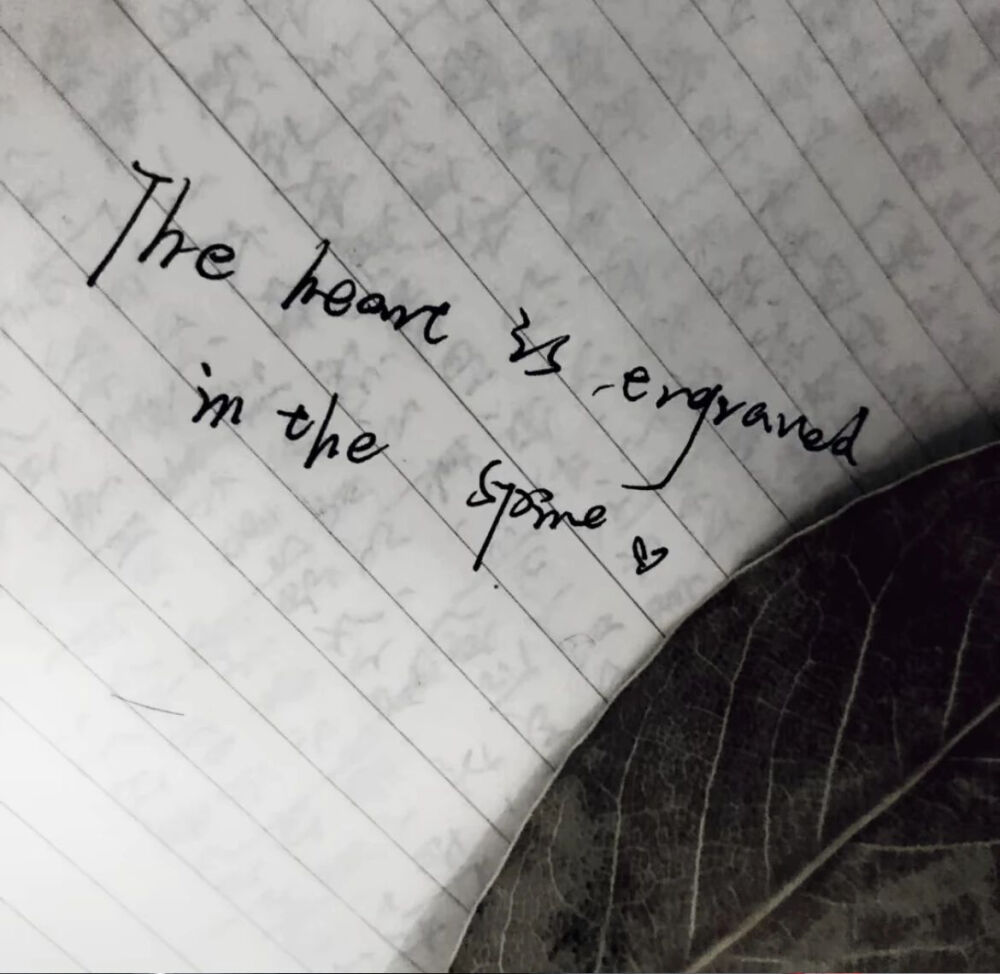 The heart is engraved
in the spine